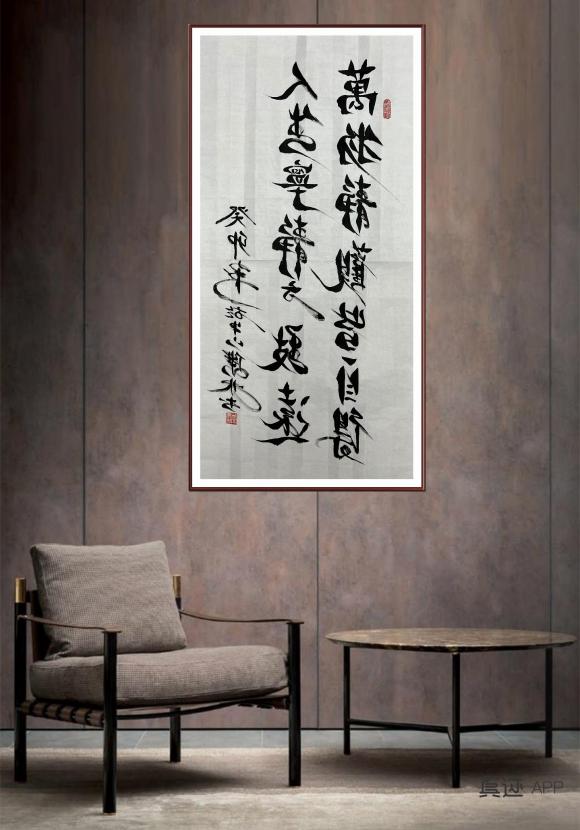 萬物靜觀皆自得
人生寧靜方致遠
癸卯年
真迹 APP